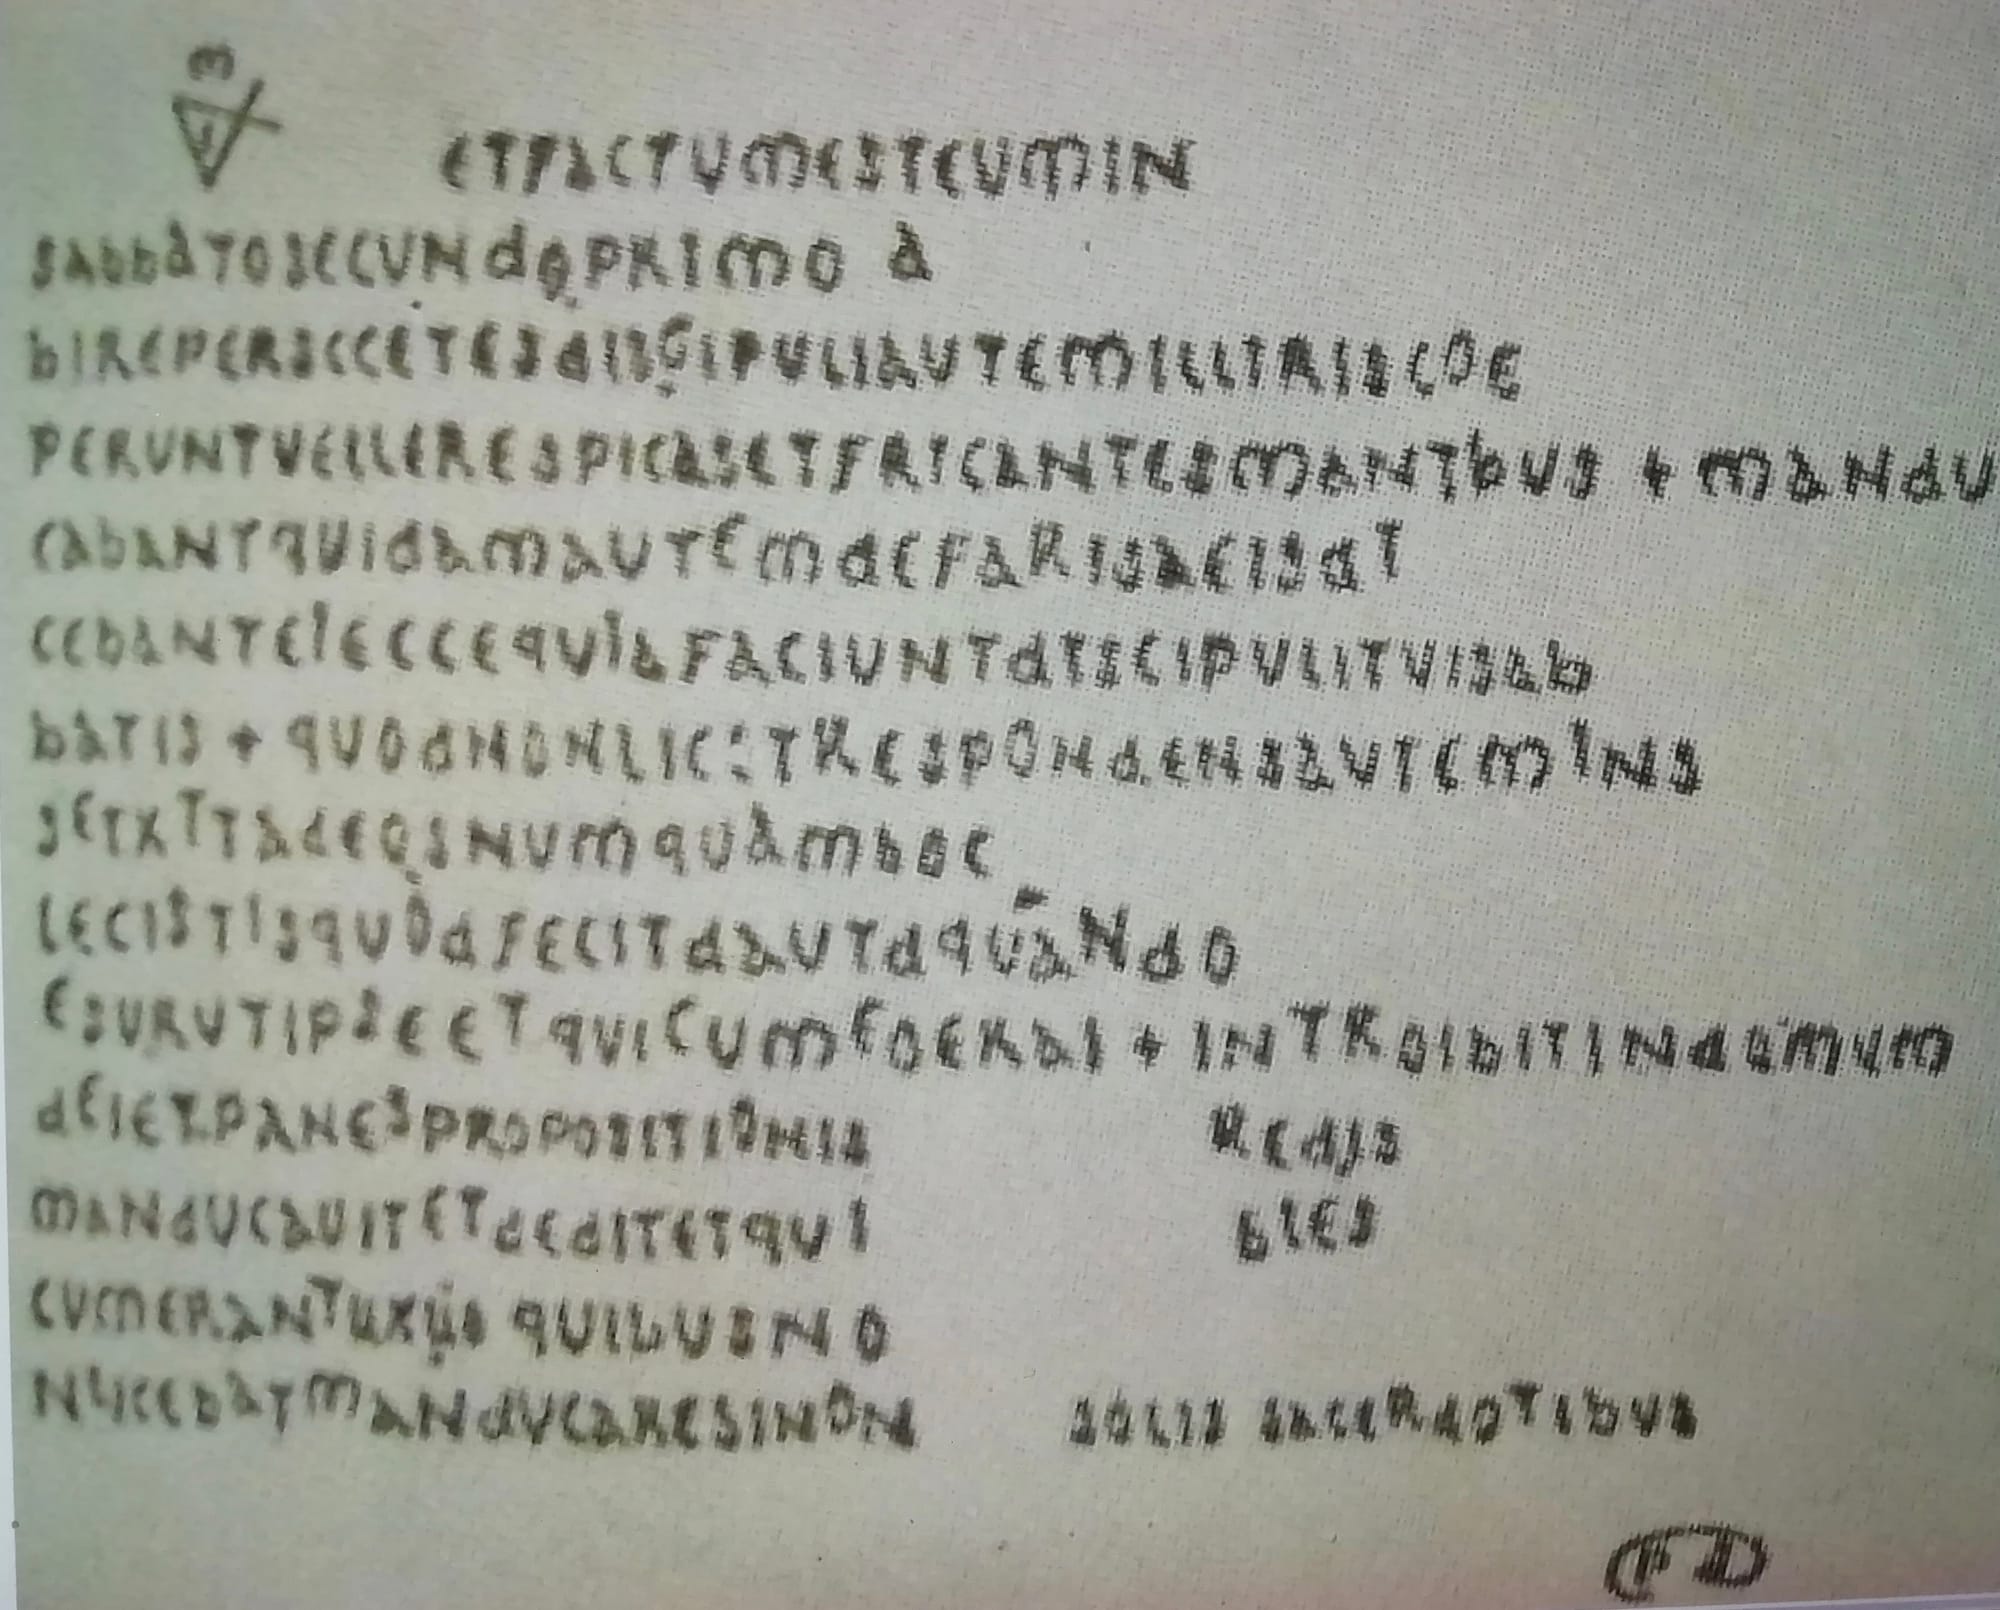 ETFACTUMESTEUMIN
SABBATOSECUNDOPRIMO À
BIREPERSCCETESDISGIPULIAUTEMILLITRISCOE
PERUNTVELLERESPICASETFRICANTESMANTBUS + MANDU
CABANTQUIDAMAUTEMDEFARISAEISDT
CEBANTEIECCEQUIAFACIUNTDTSCIPULITVISAB
BATIS + QUODNONLICETRESPONDENSAUTEMINS
SETXTTADEOSNUMQUAMBOC
LECISTISQUODFECITDAUTDQUANDO
ESURUTIPSEETQUICUMEOERAI + INTROIBITINDOMUM
DEIETPANESPROPOSITIONIS REDIS
MANDUCAVITETDEDITETQUI BLES
CUMERANTUXUO QUIBUSNO
NLICEBATMANDUCARESINON SOLIS SACERDOTIBUS